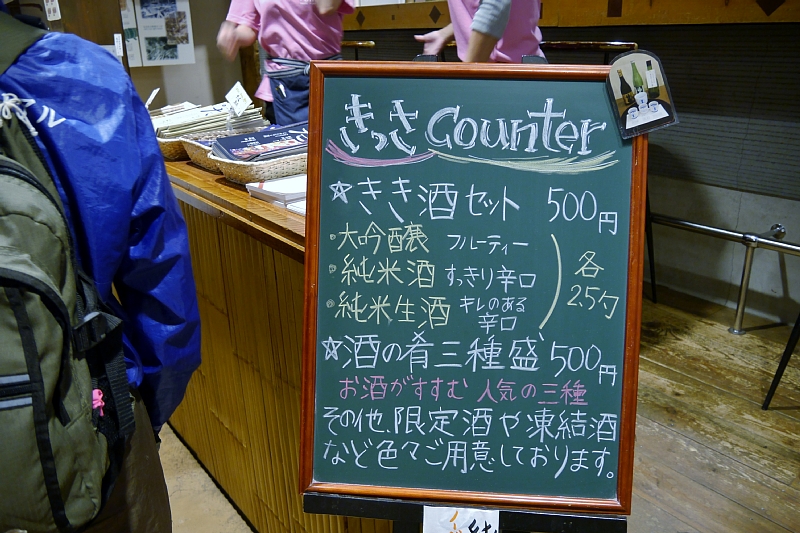 きっさ Counter
☆きき酒セット 500円
・大吟醸 フルーティー
・純米酒 すっきり辛口
・純米生酒 キレのある辛口
各2.5勺
☆酒の肴三種盛 500円
お酒がすすむ 人気の三種
その他、限定酒や凍結酒
など色々ご用意しております。